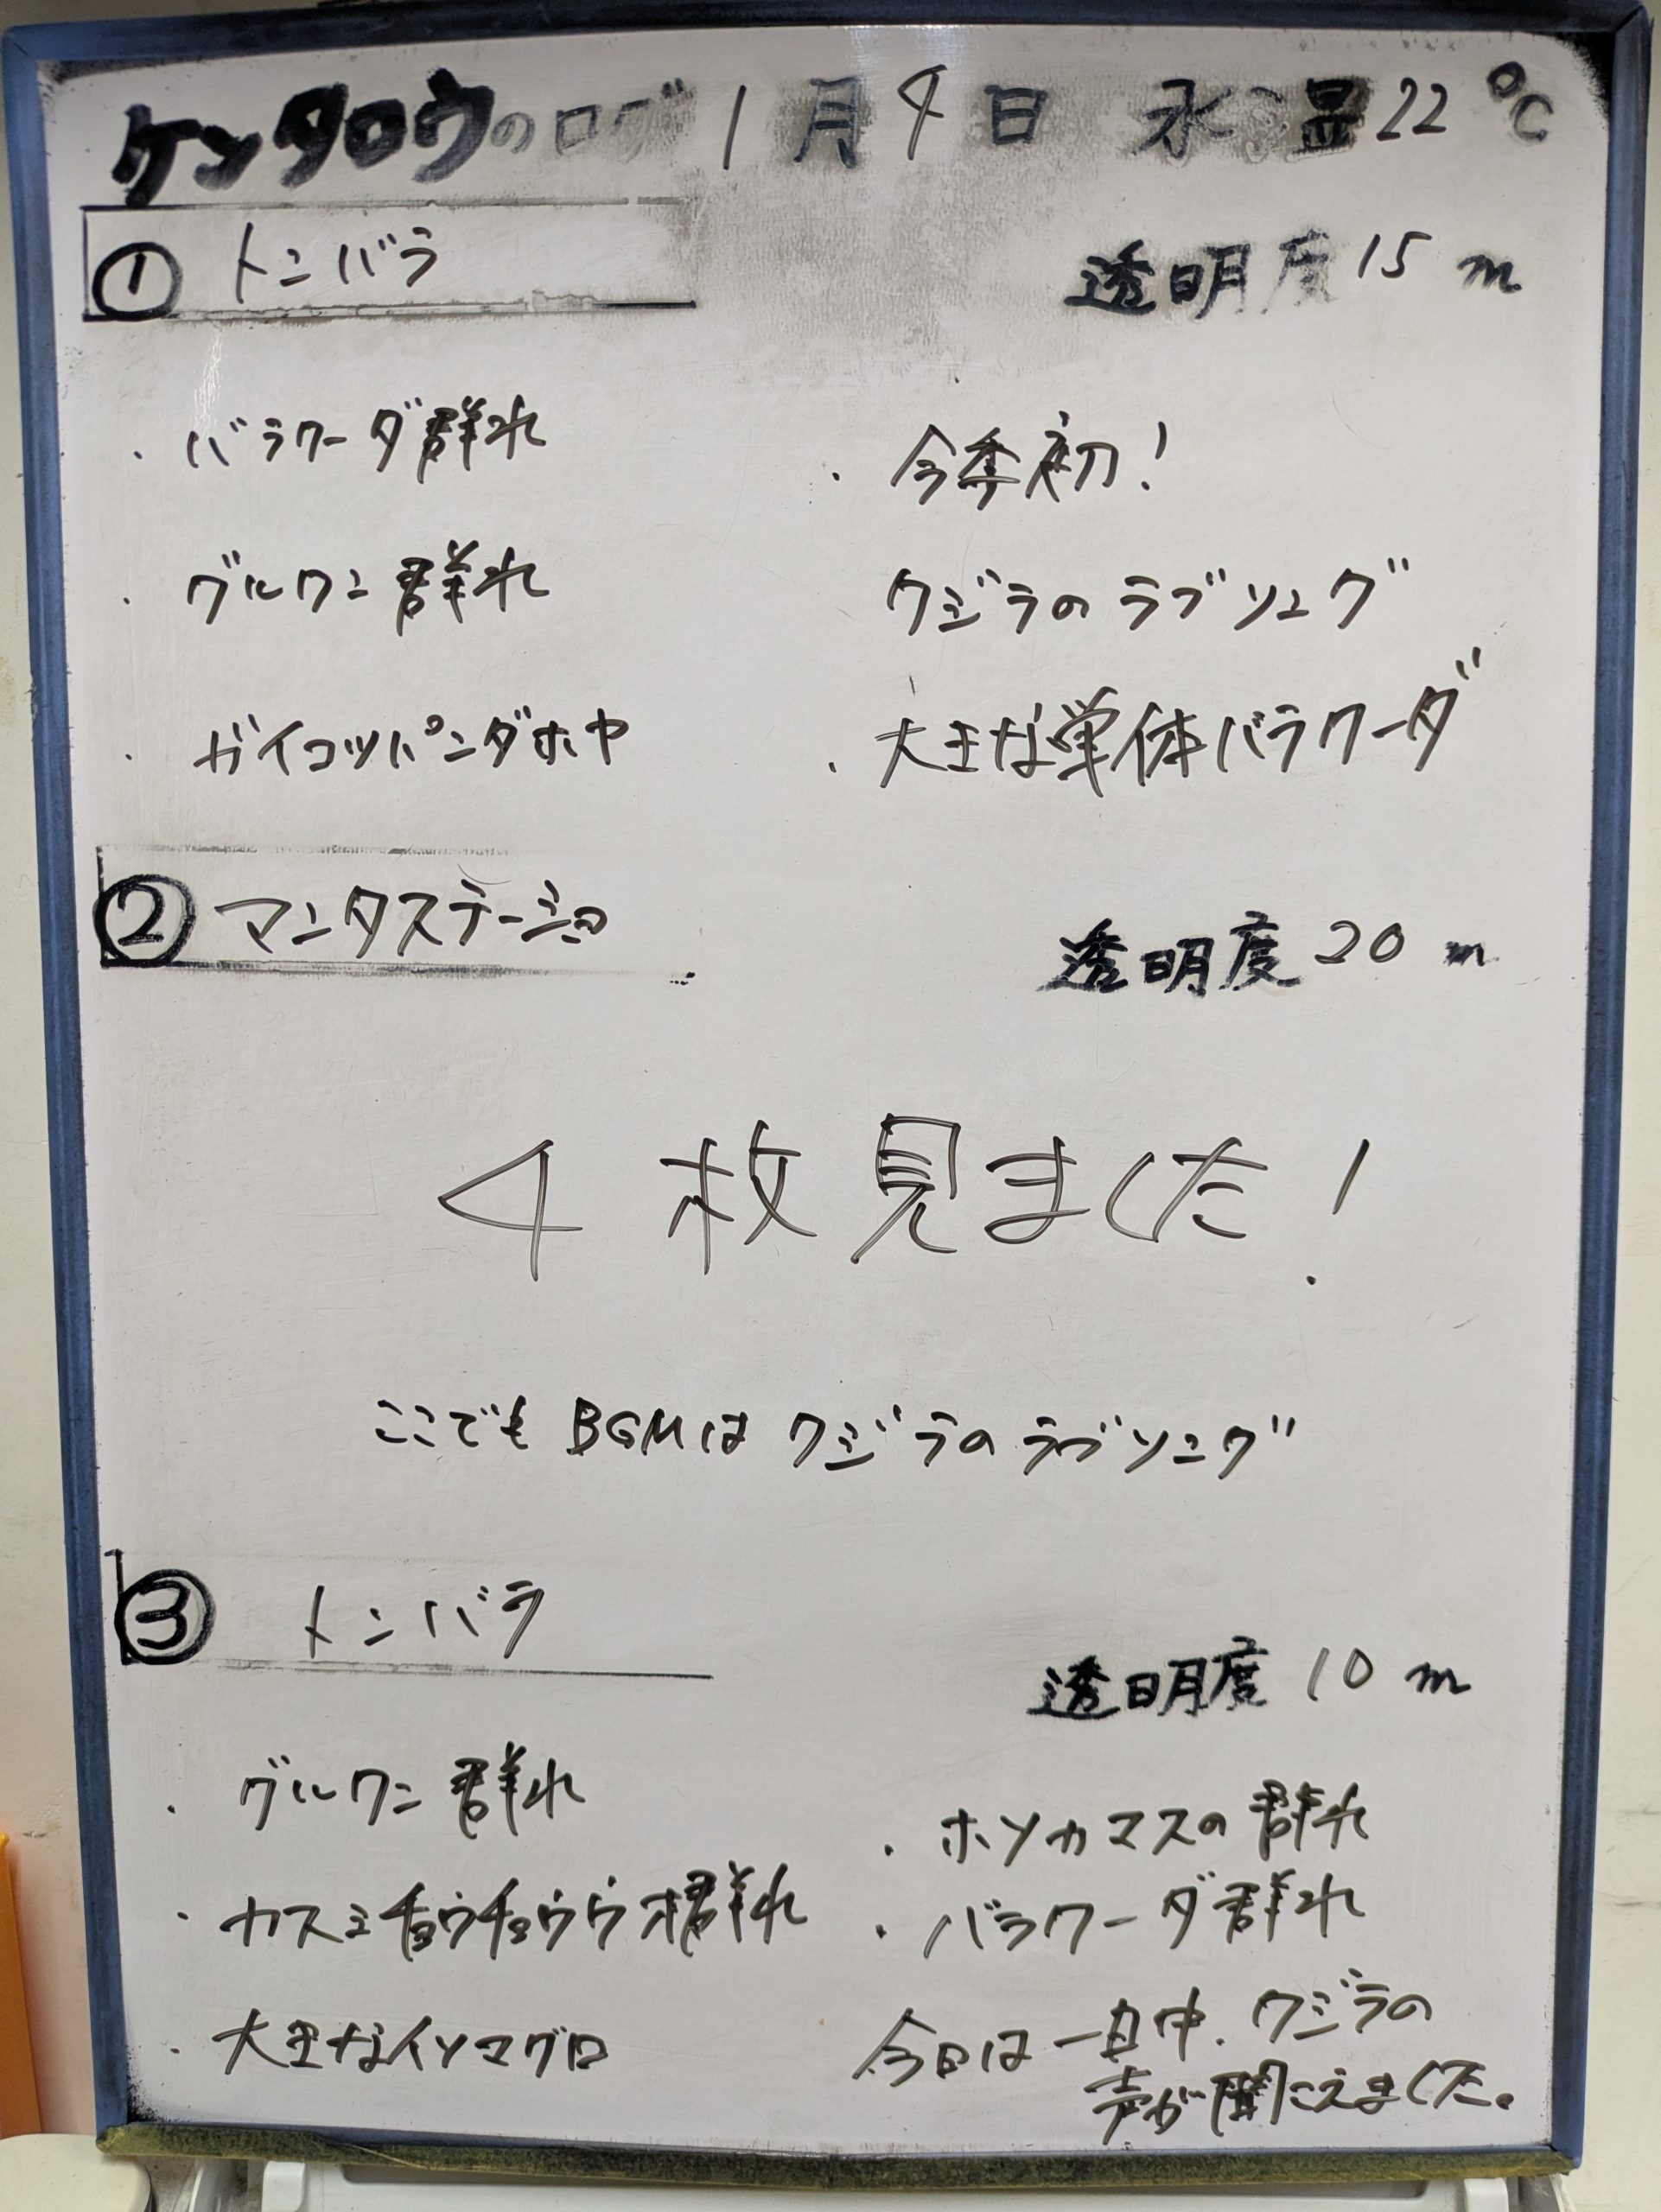 ケンタロウのログ 1月4日 水温22℃
① トンバラ 透明度15m
・バラクーダ群れ
・グルクン群れ
・ガイコツパンダホヤ
・今季初!
クジラのラブソング
・大きな単体バラクーダ
② マンタステーション 透明度20m
4枚見ました!
ここでもBGMはクジラのラブソング
③ トンバラ 透明度10m
・グルクン群れ
・カスミチョウチョウウオ群れ
・大きなイソマグロ
・ホソカマスの群れ
・バラクーダ群れ
今日は一日中、クジラの
声が聞こえました。